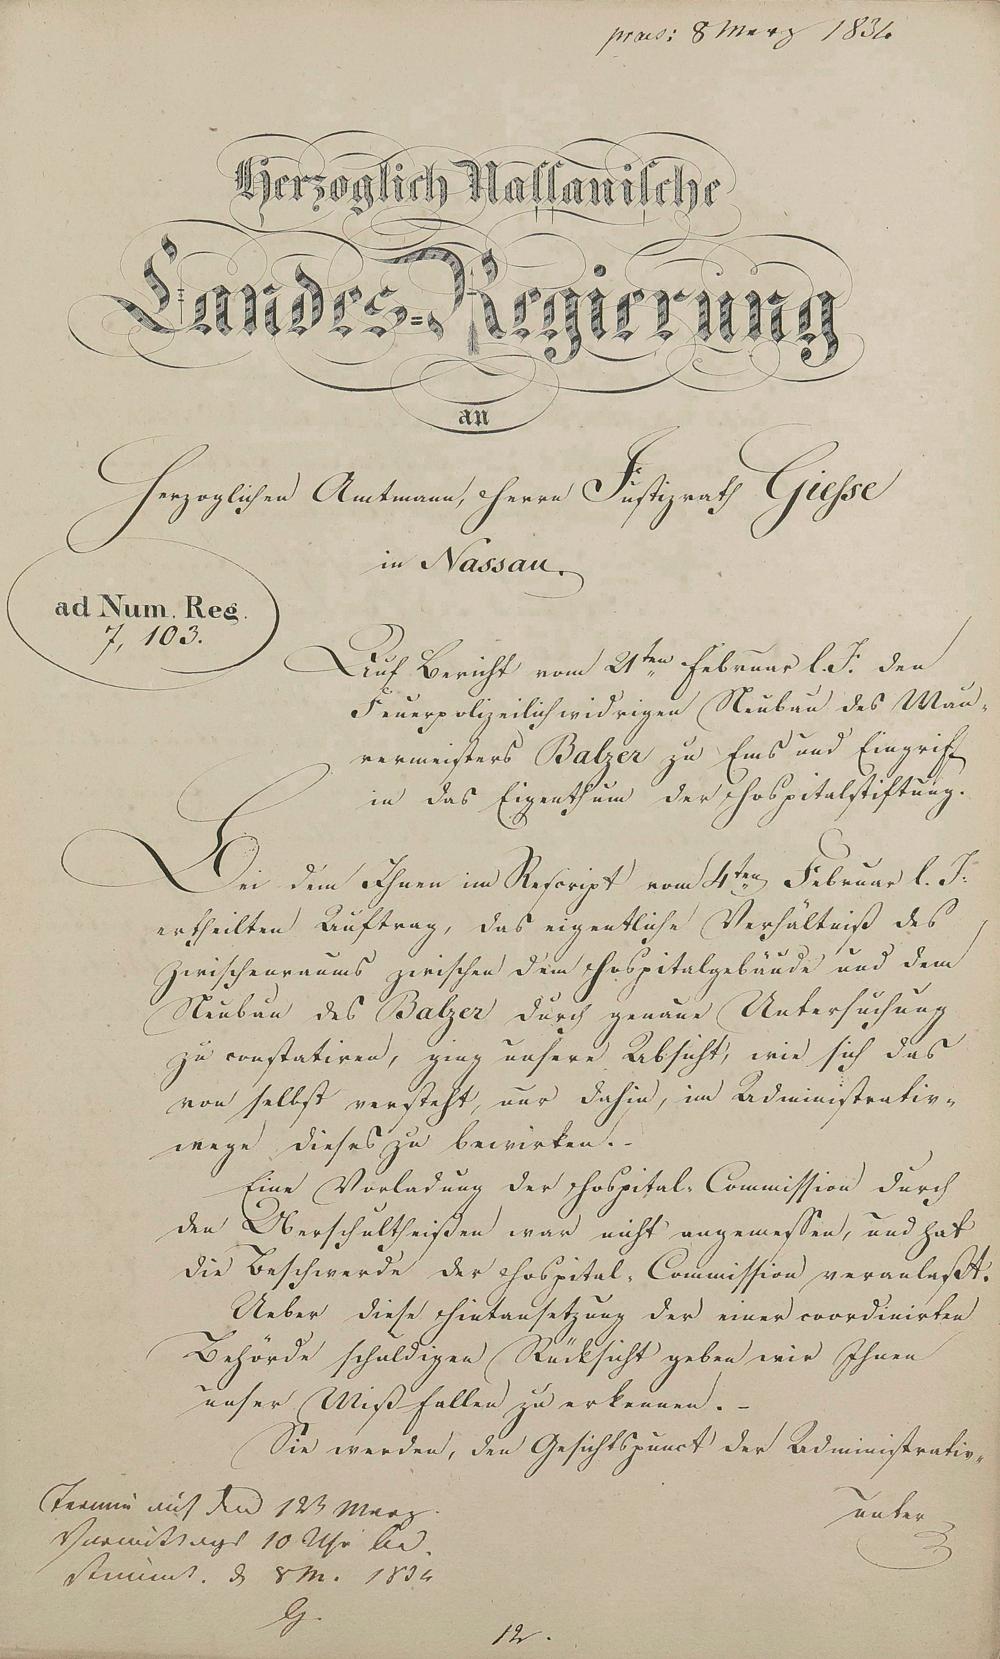 praes: 8 Merz 1834
Herzoglich Nassauische
Landes-Regierung
an
Herzoglichen Amtmann, Herrn Justizrath Giesse
in Nassau.
ad Num. Reg.
7, 103.
Auf Bericht vom 21ten Februar l. J. den
Feuerpolizeilichwidrigen Neubau des Mau-
rermeisters Balzer zu Ems und Eingriff
in das Eigenthum der Hospitalstiftung.
Bei dem Ihnen im Rescript vom 4ten Februar l. J.
ertheilten Auftrag, das eigentliche Verhältniß des
Zwischenraums zwischen dem Hospitalgebäude und dem
Neubau des Balzer durch genaue Untersuchung
zu constatiren, ging unsere Absicht, wie sich das
von selbst versteht, nur dahin, im Administrativ-
wege dieses zu bewirken.-
Eine Vorladung der Hospital-Commission durch
den Oberschultheißen war nicht angemessen, und hat
die Beschwerde der Hospital-Commission veranlaßt.
Ueber diese Hintansetzung der einer coordinirten
Behörde schuldigen Rücksicht geben wir Ihnen
unser Mißfallen zu erkennen.-
Sie werden, den Gesichtspunct der Administrativ-
unter
Termin auf den 12t Merz
Vormittags 10 Uhr be
stimmt. d 8 M. 1834
G.
12.